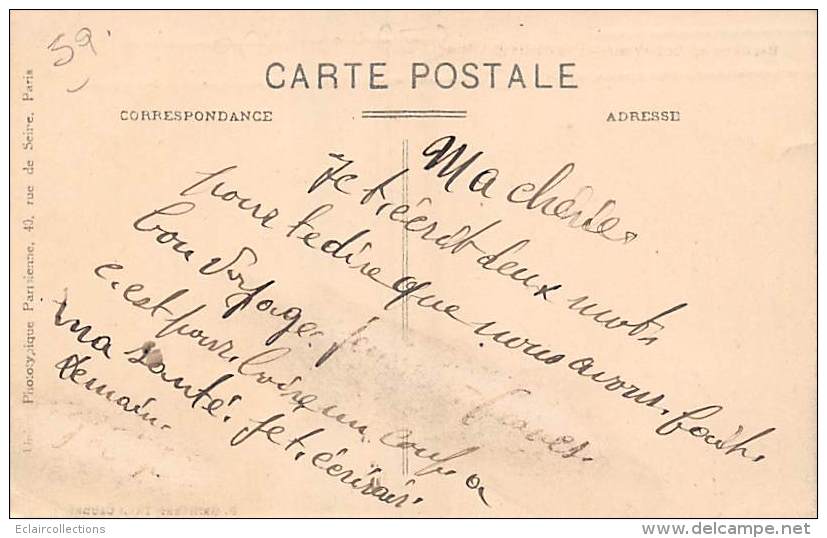 59
CARTE POSTALE
CORRESPONDANCE
ADRESSE
Phototypique Parisienne, 40, rue de Seine, Paris
Ma chérie
Je t,écrit deux mots
pour te dire que nous avons fait
bon voyage. francs.
c,est pour boire un coup a
ma santé. Je t,écrirais
demain.
Eclaircollections
www.delcampe.net